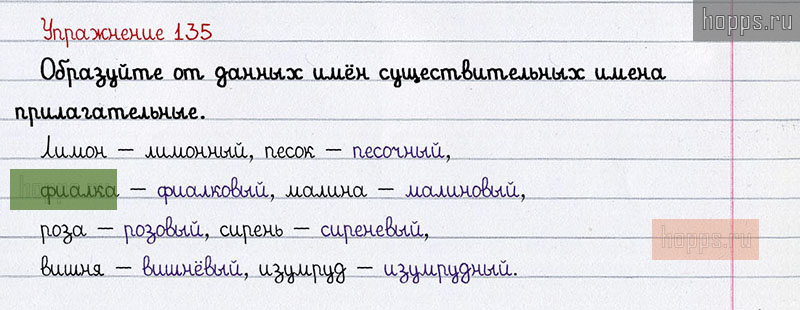 hopps.ru
Упражнение 135
Образуйте от данных имён существительных имена
прилагательные.
Лимон – лимонный, песок – песочный,
фиалка – фиалковый, малина – малиновый,
роза – розовый, сирень – сиреневый,
hopps.ru
вишня – вишнёвый, изумруд – изумрудный.